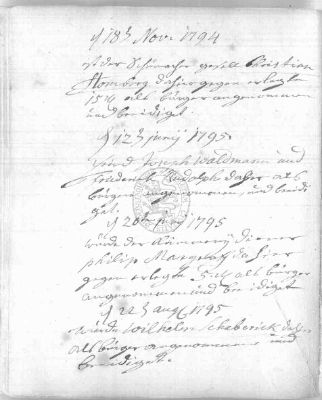 d 18t Nov: 1794
ist der Schumacher gesell Christian
Homberg dahier gegen erlegte
15 fl als bürger angenommen
und beeidigt.
d 12t junÿ 1795
sind Joseph Waldmann und
Friderich Rudolph daher als
bürger angenommen, und beeidi
get.
d 20t 1795
wurde der diener
philip dahier
gegen erlegte 5 fl als bürger
angenommen und beeidiget
d 22t aug 1795
wurde Wilhelm Schaberick dahier
als bürger angenommen und
beeidiget.